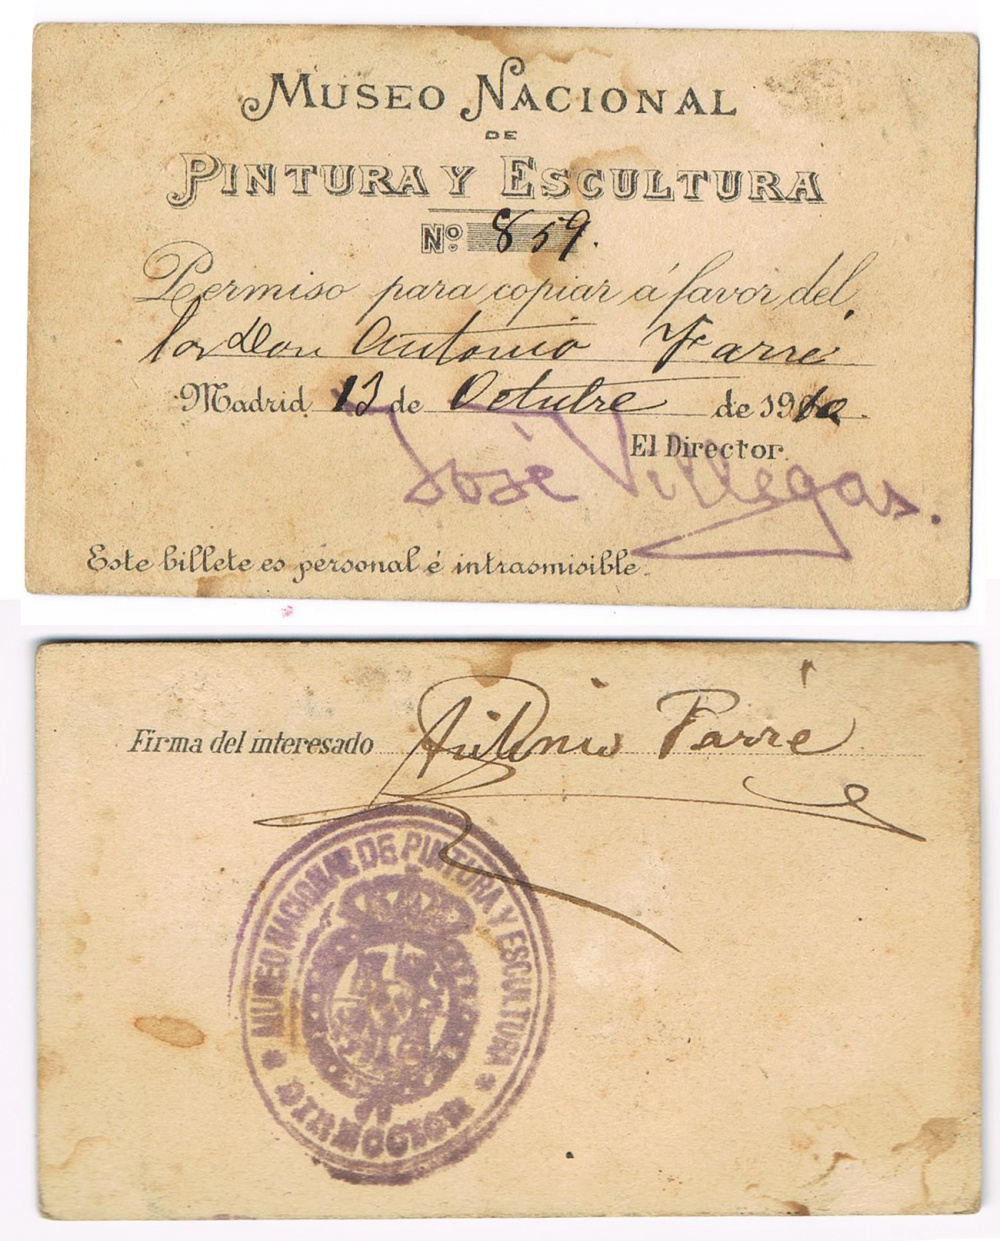 MUSEO NACIONAL
DE
PINTURA Y ESCULTURA
Nº 859.
Permiso para copiar á favor del
Don Antonio Farré
Madrid 13 de Octubre de 1910.
El Director
José Villegas.
Este billete es personal é intrasmisible.
Firma del interesado Antonio Farré
MUSEO NACIONAL DE PINTURA Y ESCULTURA
* DIRECCION *